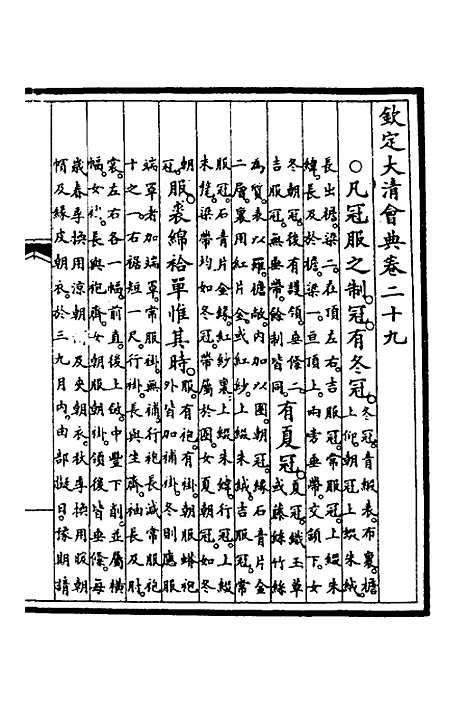 欽定大清會典卷二十九
○凡冠服之制。冠有冬冠。冬冠。青緞表。布裏。簷
上仰。朝冠上綴朱絨。
長出簷。梁二。在頂左右。吉服冠。常服冠上綴朱
緯。長及於簷。梁一。亙頂上。兩旁垂帶。交頷下。女
冬朝冠。後有護領。垂絛二。
吉服冠。無垂帶。餘制皆同。有夏冠。夏冠。織玉草
或藤絲竹絲
為質。表以羅。簷敞。內加以圈。朝冠。緣石青片金
二層。裏用紅片金或紅紗。上綴朱絨。吉服冠。常
服冠。石青片金緣。紅紗裏。上綴朱緯。行冠。上綴
朱氂。梁帶均如冬冠。帶屬於圈。女夏朝冠。如冬
朝
冠。服。裘綿袷單惟其時。服有袍有褂。朝服蟒袍
外皆加補褂。冬則應服
端罩者加端罩。常服褂無補。行袍長減常服袍
十之一。右裾短一尺。行褂長與坐齊。袖長及肘。
裳。左右各一幅。前直。後上斂中豐下削。並屬橫
幅。女褂長與袍齊。女朝服朝褂領後皆垂絛。每
歲春季換用涼朝及夾朝衣。秋季換用暖朝
及緣皮朝衣。於三九月內。由部擬日。豫期請